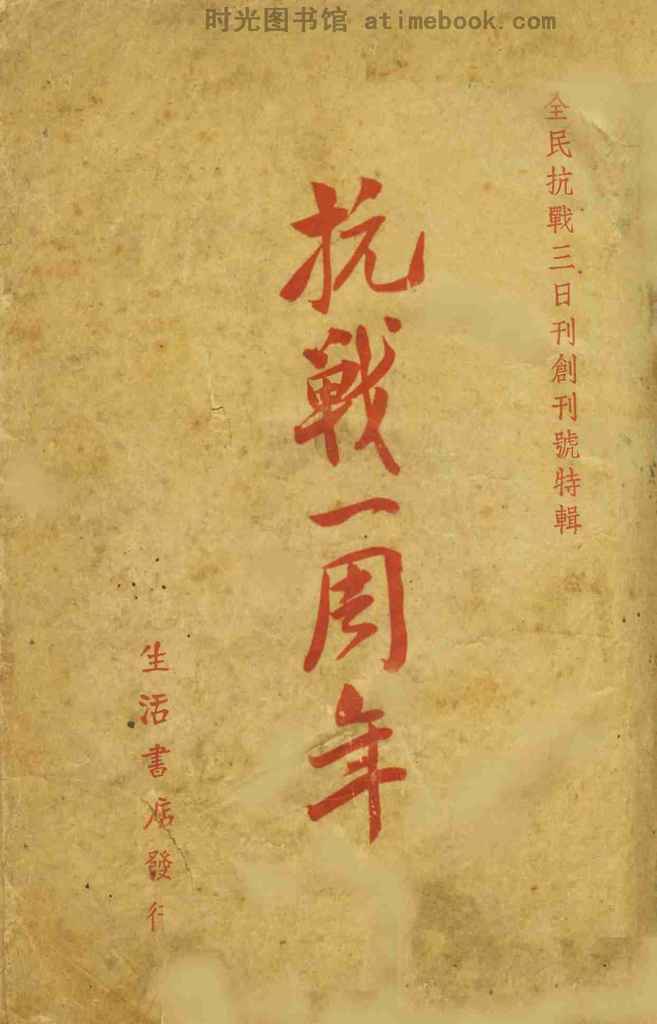 时光图书馆 atimebook.com
全民抗戰三日刊創刊號特輯
抗戰一周年
生活書店發行